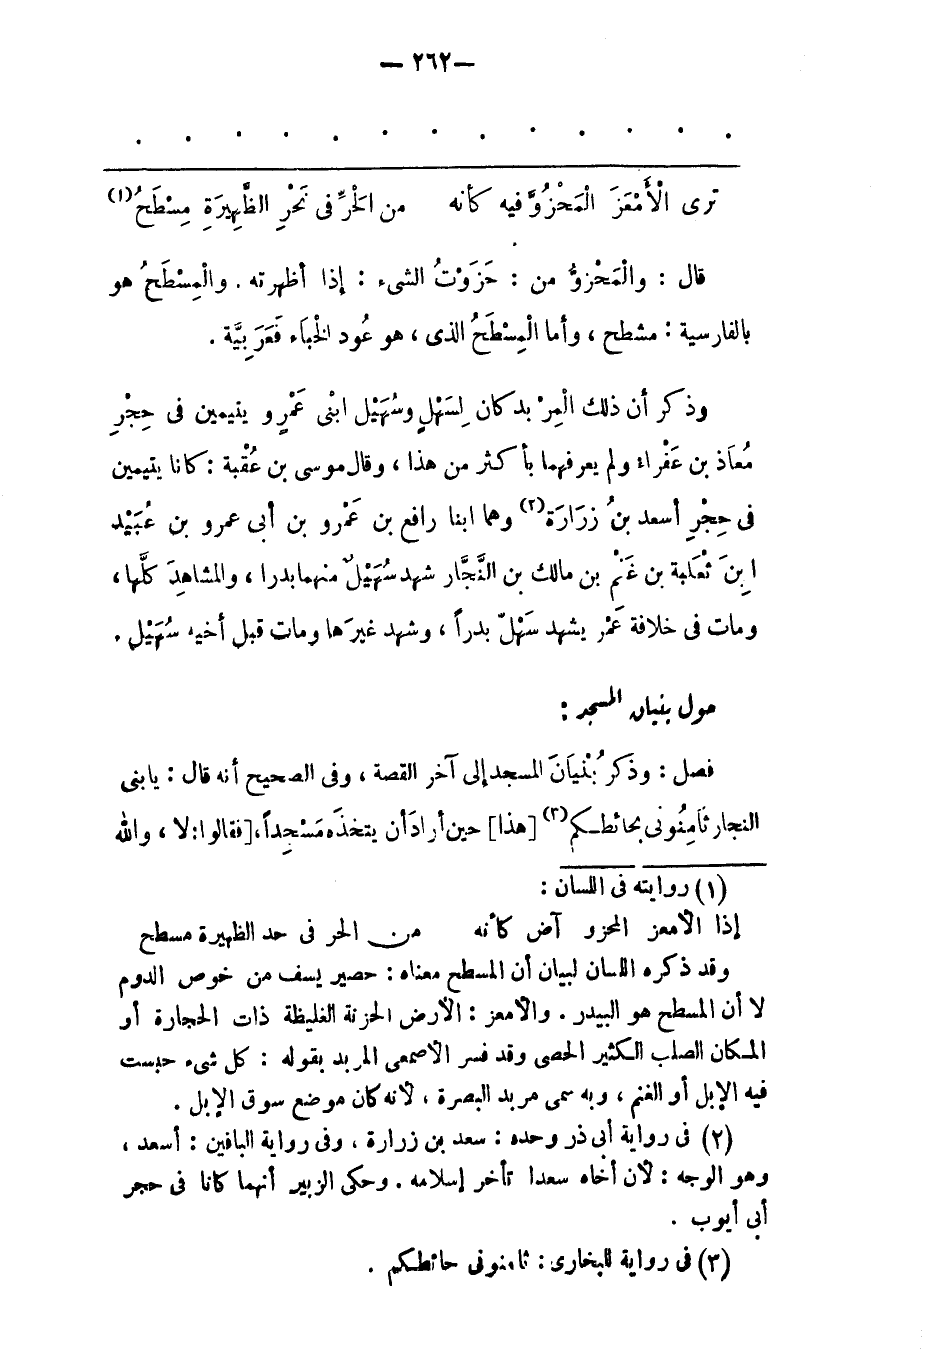 — ٢٦٢ —
. . . . . . . . . . . . .
ترى الْأَمْعَزَ الْمَحْزُوَّ فيه كأنه من الحَرِّ فى نَحْرِ الظَّهِيرَةِ مِسْطَحُ(١)
قال : والْمَحْزوُّ من : حَزَوْتُ الشىء : إذا أظهرته . والْمِسْطَحُ هو
بالفارسية : مشطح ، وأما الْمِسْطَحُ الذى ، هو عُود الخِبَاء فَعَرَبِيَّة .
وذكر أن ذلك الْمِرْبد كان لِسَهْلٍ وسُهَيْل ابْنى عَمْرٍو يتيمين فى حِجْرِ
مُعَاذ بن عَفْراء ولم يعرفهما بأكثر من هذا ، وقال موسى بن عُقْبة : كانا يتيمين
فى حِجْرِ أسعد بنُ زرَارَة(٢) وهما ابنا رافع بن عَمْرو بن أبى عمرو بن عُبَيْد
ابنَ ثَعْلَبة بن غَنْم بن مالك بن النَّجَّار شهد سُهَيْلٌ منهما بدرا ، والمشاهِدَ كلَّها ،
ومات فى خلافة عُمَر يشهد سَهْلّ بدراً ، وشهد غيرَها ومات قبل أخيه سُهَيْل .
حول بنيان المسجد :
فصل : وذَكر بُنْيَانَ المسجد إلى آخر القصة ، وفى الصحيح أنه قال : يا بنى
النجار ثَامِنُونى بحائطكم(٣) [هذا] حين أرادَ أن يتخذَه مَسْجِداً، [فقالوا: لا ، والله
(١) روايته فى اللسان :
إذا الأمعز المحزو آض كأنه من الحر فى حد الظهيرة مسطح
وقد ذكره اللسان لبيان أن المسطح معناه : حصير يسف من خوص الدوم
لا أن المسطح هو البيدر . والأمعز : الأرض الحزنة الغليظة ذات الحجارة أو
المكان الصلب الكثير الحصى وقد فسر الأصمعى المربد بقوله : كل شىء حبست
فيه الإبل أو الغنم ، وبه سمى مربد البصرة ، لأنه كان موضع سوق الإبل .
(٢) فى رواية أبى ذر وحده : سعد بن زرارة ، وفى رواية الباقين : أسعد ،
وهو الوجه : لأن أخاه سعدا تأخر إسلامه . وحكى الزبير أنهما كانا فى حجر
أبى أيوب .
(٣) فى رواية للبخارى : ثامنونى حائطكم .